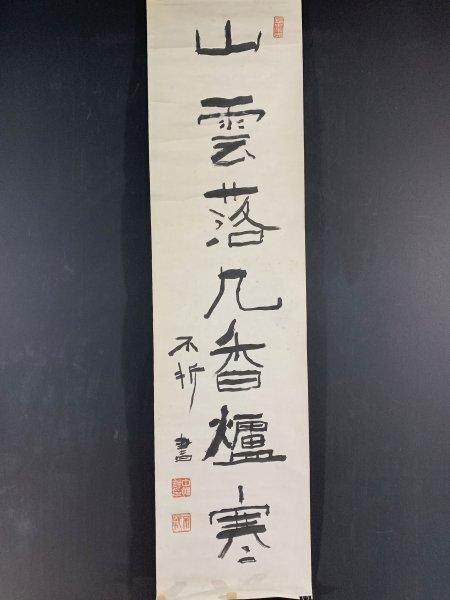 山雲落几香爐寒
不折書